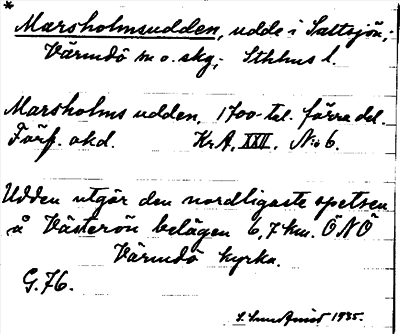 * Marsholmsudden, udde i Saltsjön;
Värmdö sn o. skg; Sthlms l.
Marsholms udden, 1700-tal. förra del.
Förf. okd. Kr.A. XXII. No 6.
Udden utgör den nordligaste spetsen
å Västerön belägen 6,7 km. ÖNÖ
Värmdö kyrka.
G. 76.
1935.